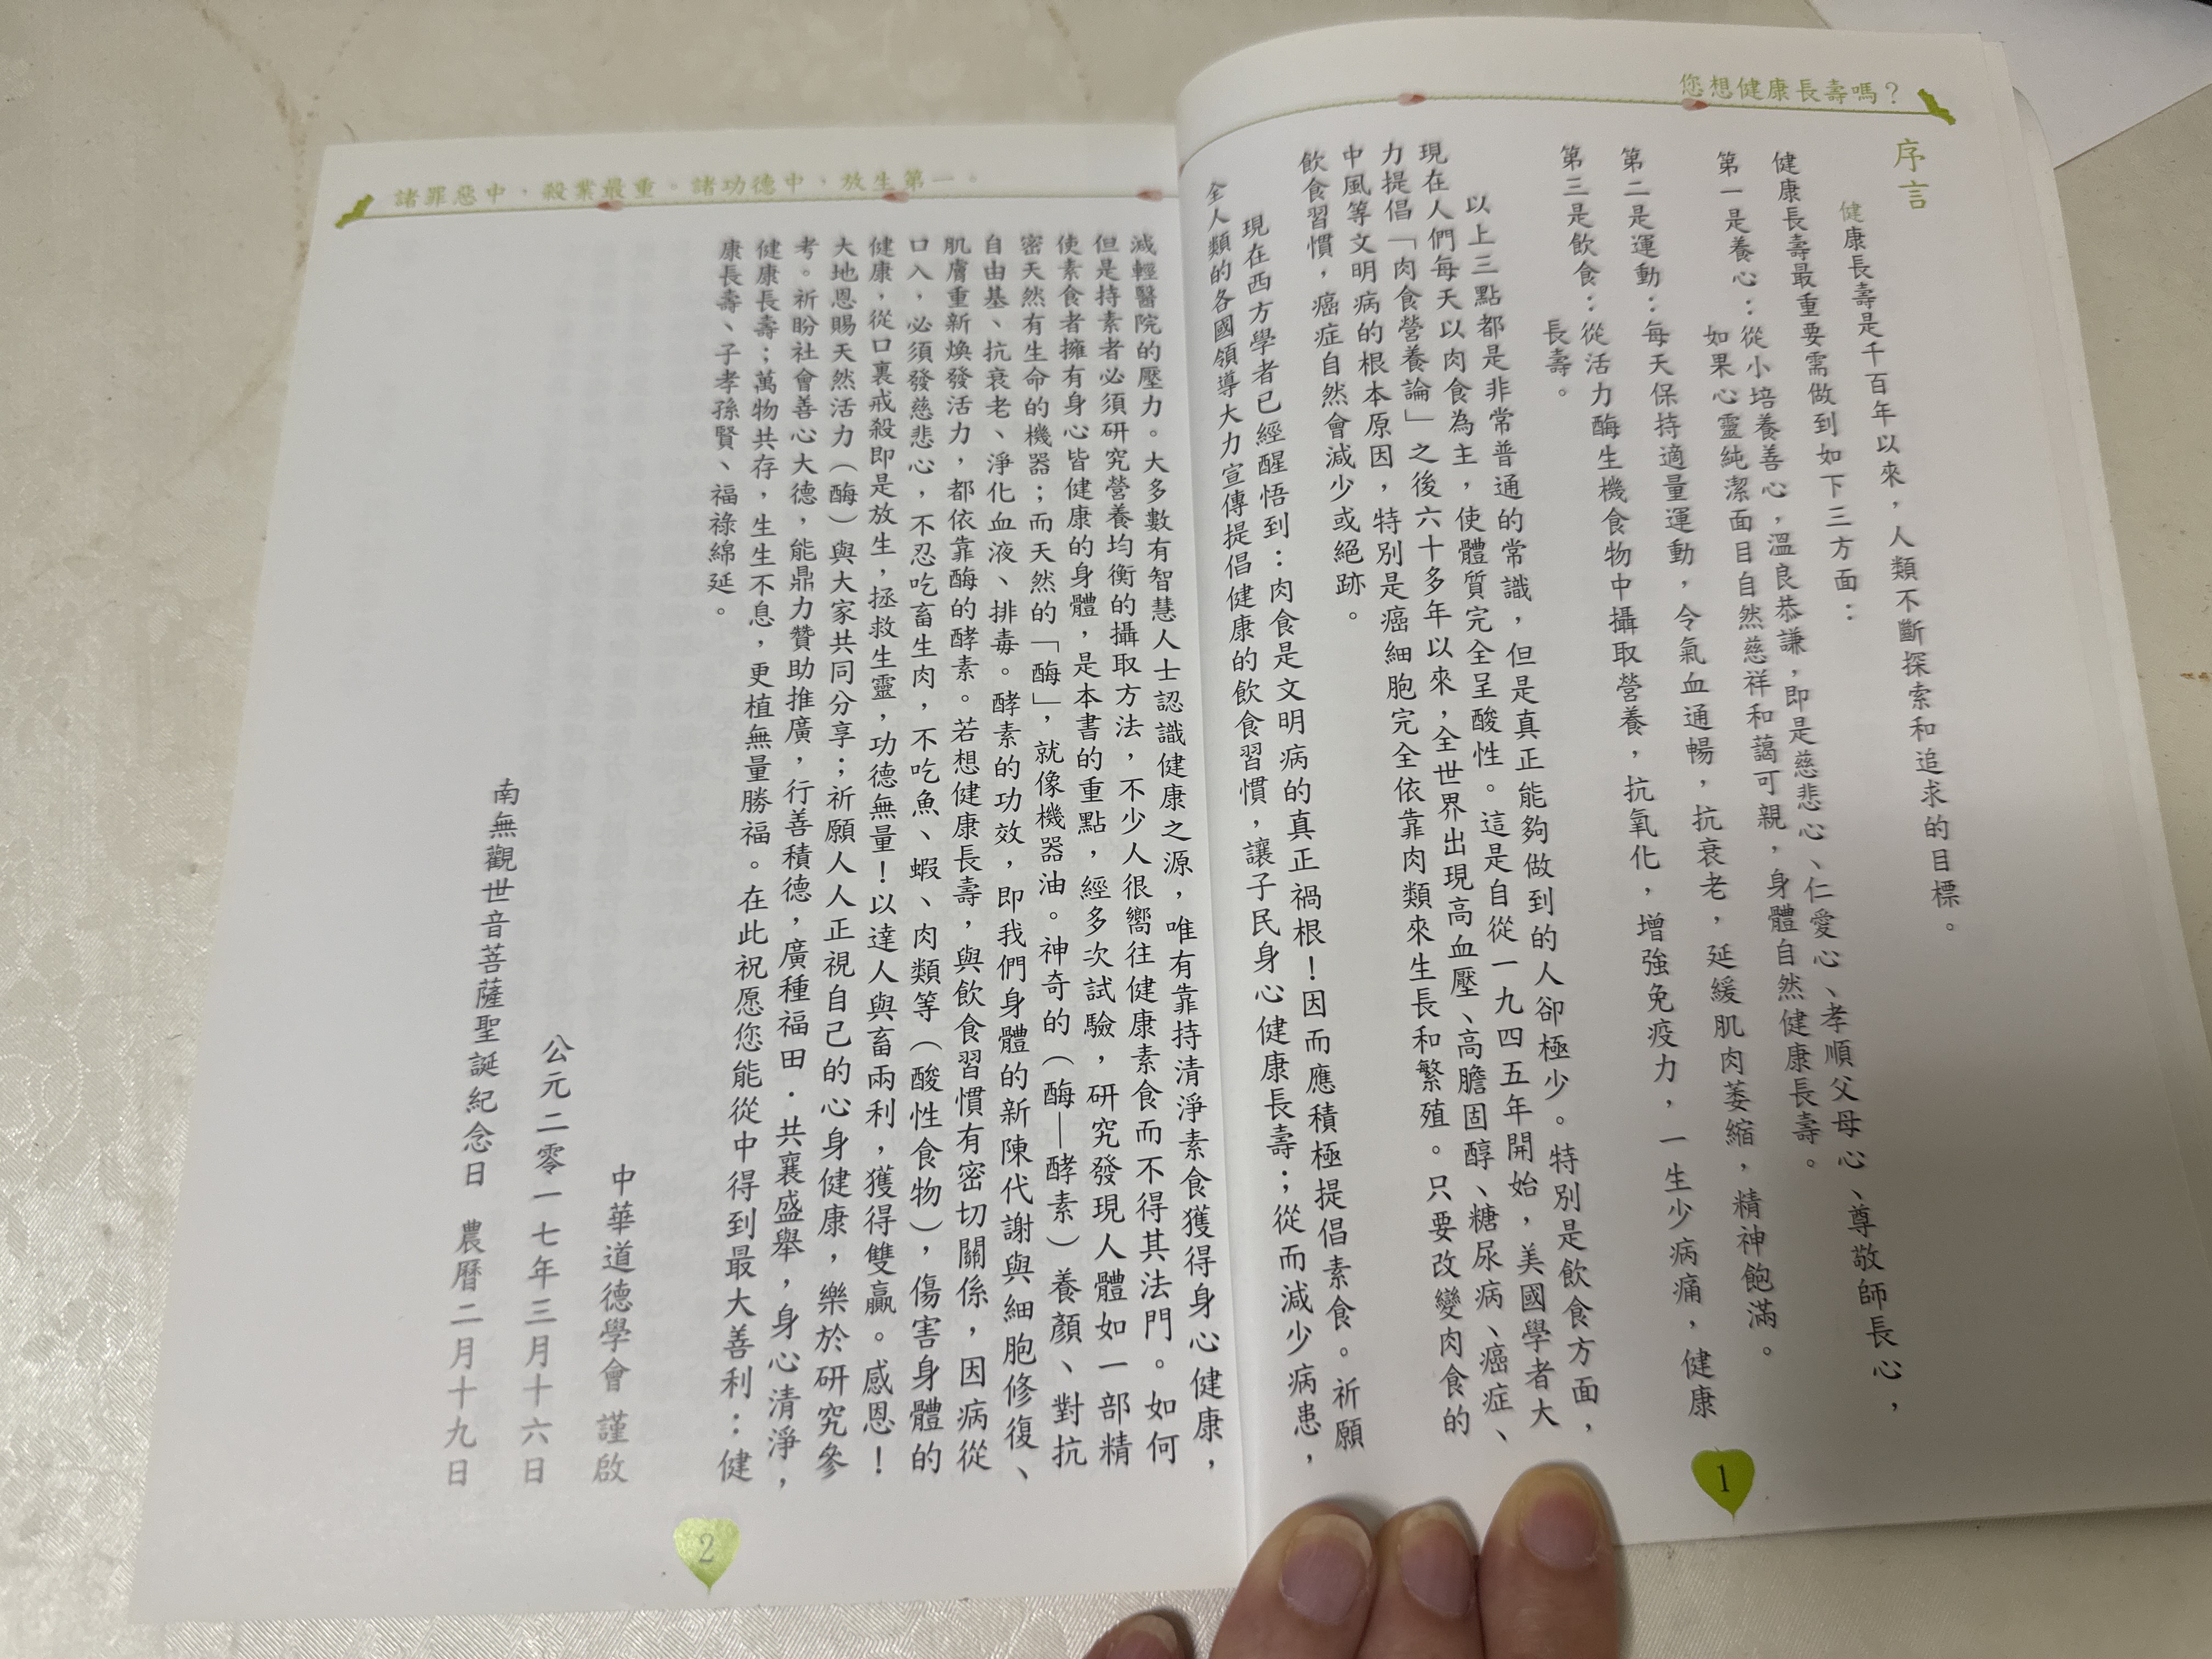 您想健康長壽嗎？
序言
健康長壽是千百年以來，人類不斷探索和追求的目標。
健康長壽最重要需做到如下三方面：
第一是養心：從小培養善心，溫良恭謙，即是慈悲心、仁愛心、孝順父母心、尊敬師長心，
如果心靈純潔面目自然慈祥和藹可親，身體自然健康長壽。
第二是運動：每天保持適量運動，令氣血通暢，抗衰老，延緩肌肉萎縮，精神飽滿。
第三是飲食：從活力酶生機食物中攝取營養，抗氧化，增強免疫力，一生少病痛，健康
長壽。
以上三點都是非常普通的常識，但是真正能夠做到的人卻極少。特別是飲食方面，
現在人們每天以肉食為主，使體質完全呈酸性。這是自從一九四五年開始，美國學者大
力提倡「肉食營養論」之後六十多年以來，全世界出現高血壓、高膽固醇、糖尿病、癌症、
中風等文明病的根本原因，特別是癌細胞完全依靠肉類來生長和繁殖。只要改變肉食的
飲食習慣，癌症自然會減少或絕跡。
現在西方學者已經醒悟到：肉食是文明病的真正禍根！因而應積極提倡素食。祈願
全人類的各國領導大力宣傳提倡健康的飲食習慣，讓子民身心健康長壽；從而減少病患，
1
諸罪惡中，殺業最重。諸功德中，放生第一。
減輕醫院的壓力。大多數有智慧人士認識健康之源，唯有靠持清淨素食獲得身心健康，
但是持素者必須研究營養均衡的攝取方法，不少人很嚮往健康素食而不得其法門。如何
使素食者擁有身心皆健康的身體，是本書的重點，經多次試驗，研究發現人體如一部精
密天然有生命的機器；而天然的「酶」，就像機器油。神奇的（酶—酵素）養顏、對抗
自由基、抗衰老、淨化血液、排毒。酵素的功效，即我們身體的新陳代謝與細胞修復、
肌膚重新煥發活力，都依靠酶的酵素。若想健康長壽，與飲食習慣有密切關係，因病從
口入，必須發慈悲心，不忍吃畜生肉，不吃魚、蝦、肉類等（酸性食物），傷害身體的
健康，從口裏戒殺即是放生，拯救生靈，功德無量！以達人與畜兩利，獲得雙贏。感恩！
大地恩賜天然活力（酶）與大家共同分享；祈願人人正視自己的心身健康，樂於研究參
考。祈盼社會善心大德，能鼎力贊助推廣，行善積德，廣種福田．共襄盛舉，身心清淨，
健康長壽；萬物共存，生生不息，更植無量勝福。在此祝愿您能從中得到最大善利：健
康長壽、子孝孫賢、福祿綿延。
中華道德學會 謹啟
公元二零一七年三月十六日
南無觀世音菩薩聖誕紀念日 農曆二月十九日
2